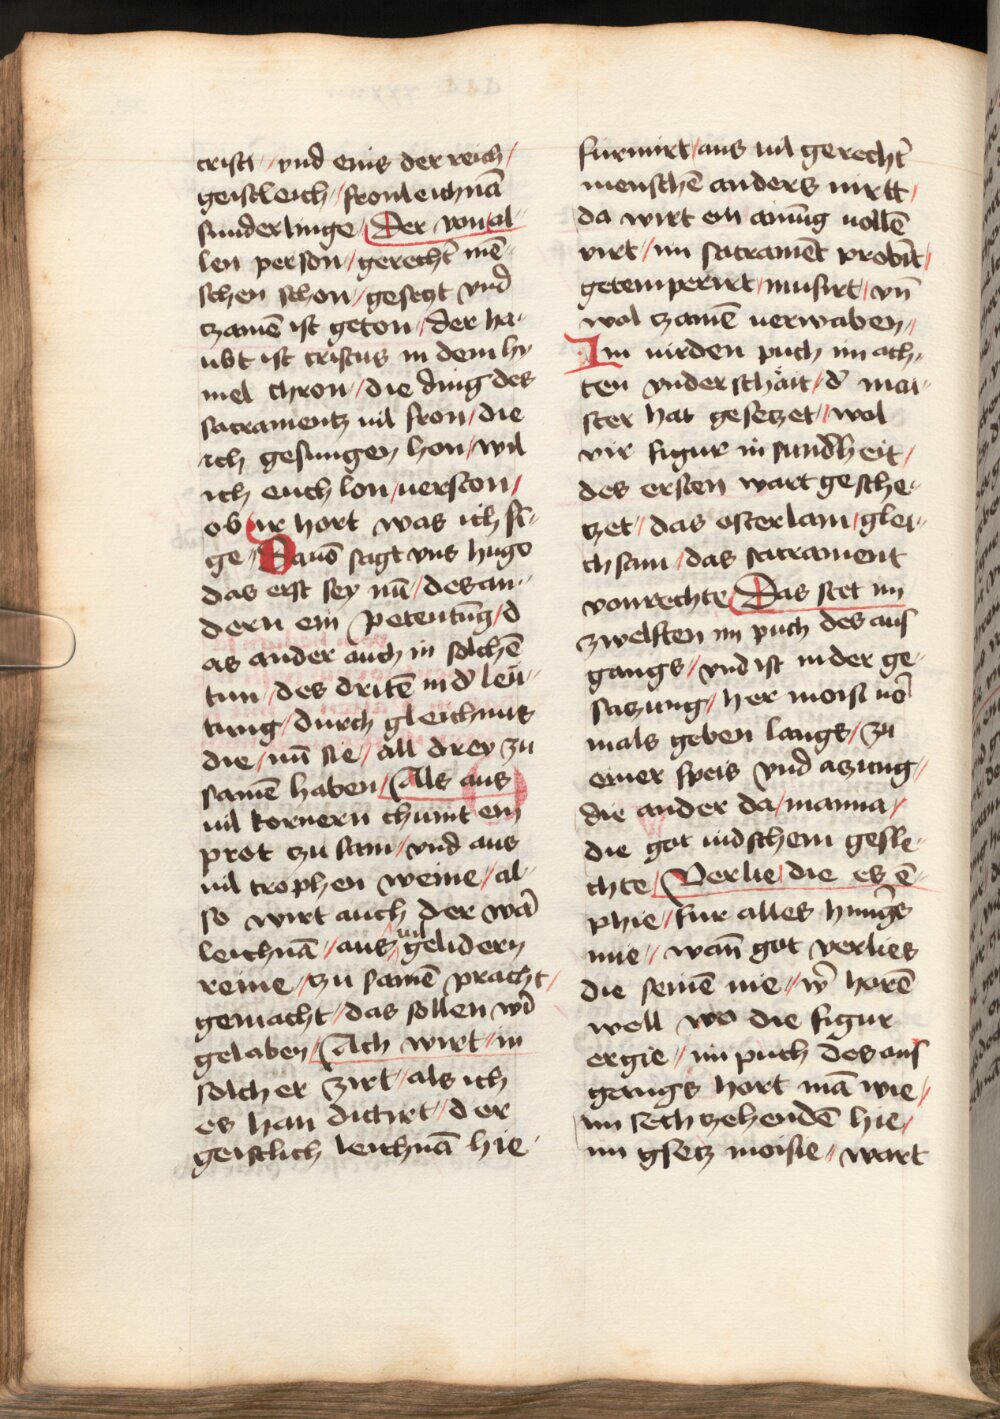 cristi // vnd einis der reich /
geistleich / fronleichnā
sunderlinge / Der von al-
len person / gerecht' mē-
schen schon / gesetzt vnd
tzamē ist geton / der ha-
ubt ist cristus in dem hy-
mel thron / die ding des
sacramentz uil fron / die
ich gesungen hon / wil
ich euch lon / uerston /
ob ir hort was ich si-
ge // Dauō sagt vns hugo
das erst sey nū / des an-
dern ein petentūg / d
as ander auch in solchē
tun / des dritē in d' leü-
tung / durch gleichnus
die / nū sie / all drey zu
samē haben / Als aus
uil kornern chumt ein
prot zu sam / vnd aus
uil trophen weine / al-
so wirt auch der war
leichnā / aus uil gelidern
reine / zu samē pracht /
gemacht / das sollen wir
gelaben / Ach wirt / in
solcher zirt / als ich
es han dictirt / der
geistlich leichnā hie-
furmirt / aus uil gerecht'
menschē anders nirtt /
da wirt ein ainūg uollē
virt / im sacramēt probīt /
getemperirt / musirt / vn̄
wol tzamē uerwaben //
Im uirden puch im ach-
ten vnderschait / d' mai-
ster hat gesetzet / wol
vir figur in sundheit /
des ersten wart gesche-
tzet / das osterlam / glei-
chsam / das sacrament
vonrechte / Das stet im
zwelften im puch des aus
gangs / vnd ist in der ge-
satzung / her moisi uor
mals geben langs / zu
einer speis vnd atzung /
die ander da / manna /
die got iudschem gesle-
chte / Verlie / die es ē-
phie / fur alles hungers
mie // wan̄ got verlies
die seinē nie // w' horē
woll wo die figur
ergie // im puch des aus
gangs hort mā wie //
im sechtzehendē hie /
im gsetz moisie // wart